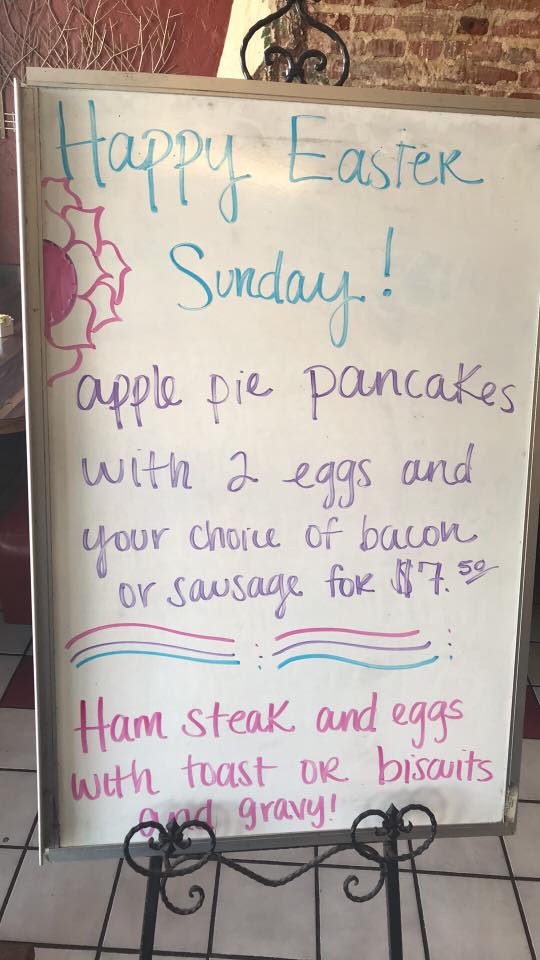 Happy Easter
Sunday!
apple pie pancakes
with 2 eggs and
your choice of bacon
or sausage for $7.50
Ham steak and eggs
with toast or biscuits
and gravy!